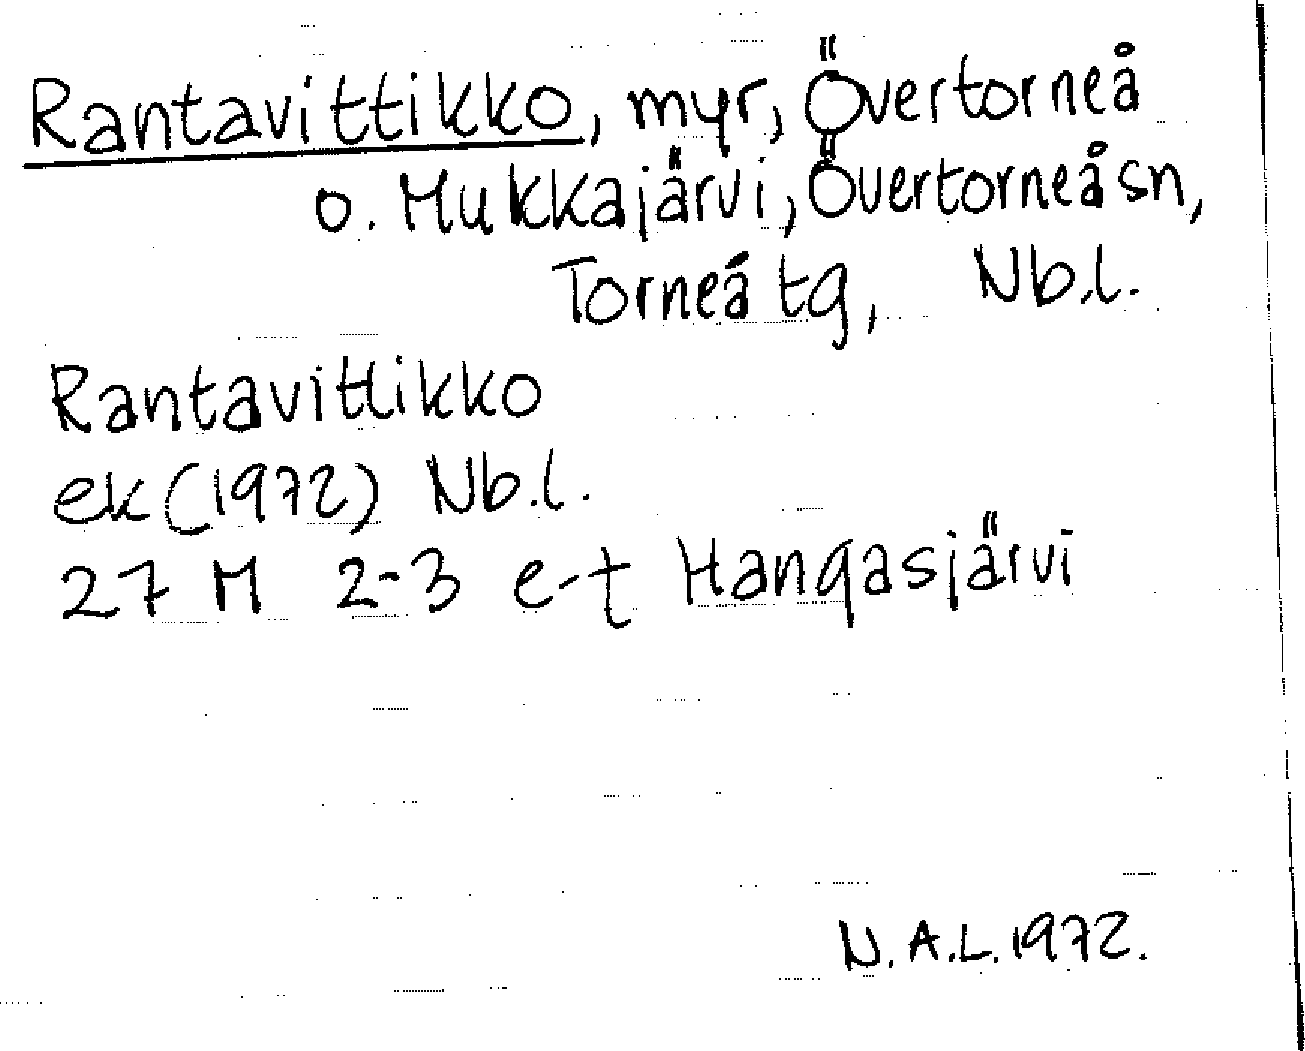 Rantavittikko, myr, Övertorneå
o. Mukkajärvi, Övertorneå sn,
Torneå tg, Nb.l.
Rantavittikko
ek (1972) Nb.l.
27 M 2-3 e-t Hangasjärvi
N.A.L. 1972.